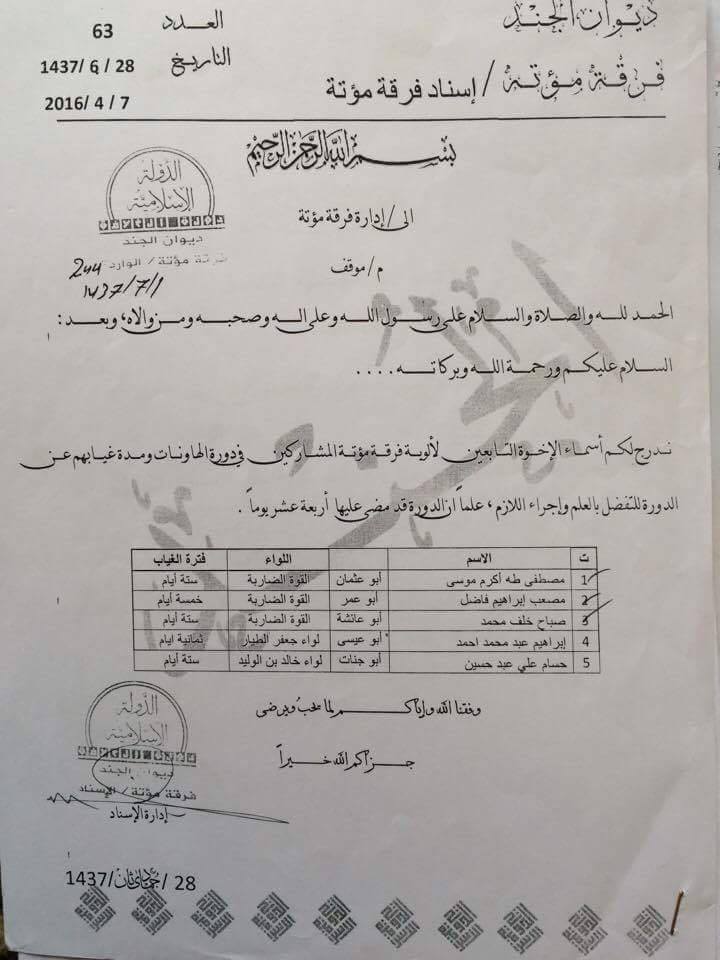 ديوان الجند
العدد 63
فرقة مؤتة / إسناد فرقة مؤتة
التاريخ 28 /6 /1437
7 / 4 /2016
بسم الله الرحمن الرحيم
الدولة
الإسلامية
ديوان الجند
فرقة مؤتة / الوارد
1437/7/1
الى / إدارة فرقة مؤتة
م/ موقف
الحمد لله والصلاة والسلام على رسول الله وعلى اله وصحبه ومن والاه، وبعد :
السلام عليكم ورحمة الله وبركاته ....
ندرج لكم أسماء الإخوة التابعين لألوية فرقة مؤتة المشاركين في دورة الهاونات ومدة غيابهم عن
الدورة للتفضل بالعلم وإجراء اللازم ، علماً ان الدورة قد مضى عليها أربعة عشر يوماً .
ت الاسم اللواء فترة الغياب
1 مصطفى طه أكرم موسى أبو عثمان القوة الضاربة ستة أيام
2 مصعب إبراهيم فاضل أبو عمر القوة الضاربة خمسة أيام
3 صباح خلف محمد أبو عائشة القوة الضاربة ستة أيام
4 إبراهيم عبد محمد احمد أبو عيسى لواء جعفر الطيار ثمانية ايام
5 حسام علي عبد حسين أبو جنات لواء خالد بن الوليد ستة أيام
وفقنا الله وإياكم لما يحب ويرضى
جزاكم الله خيراً
الدولة
الإسلامية
ديوان الجند
فرقة مؤتة / الإسناد
إدارة الإسناد
28 /جمادى ثان/1437